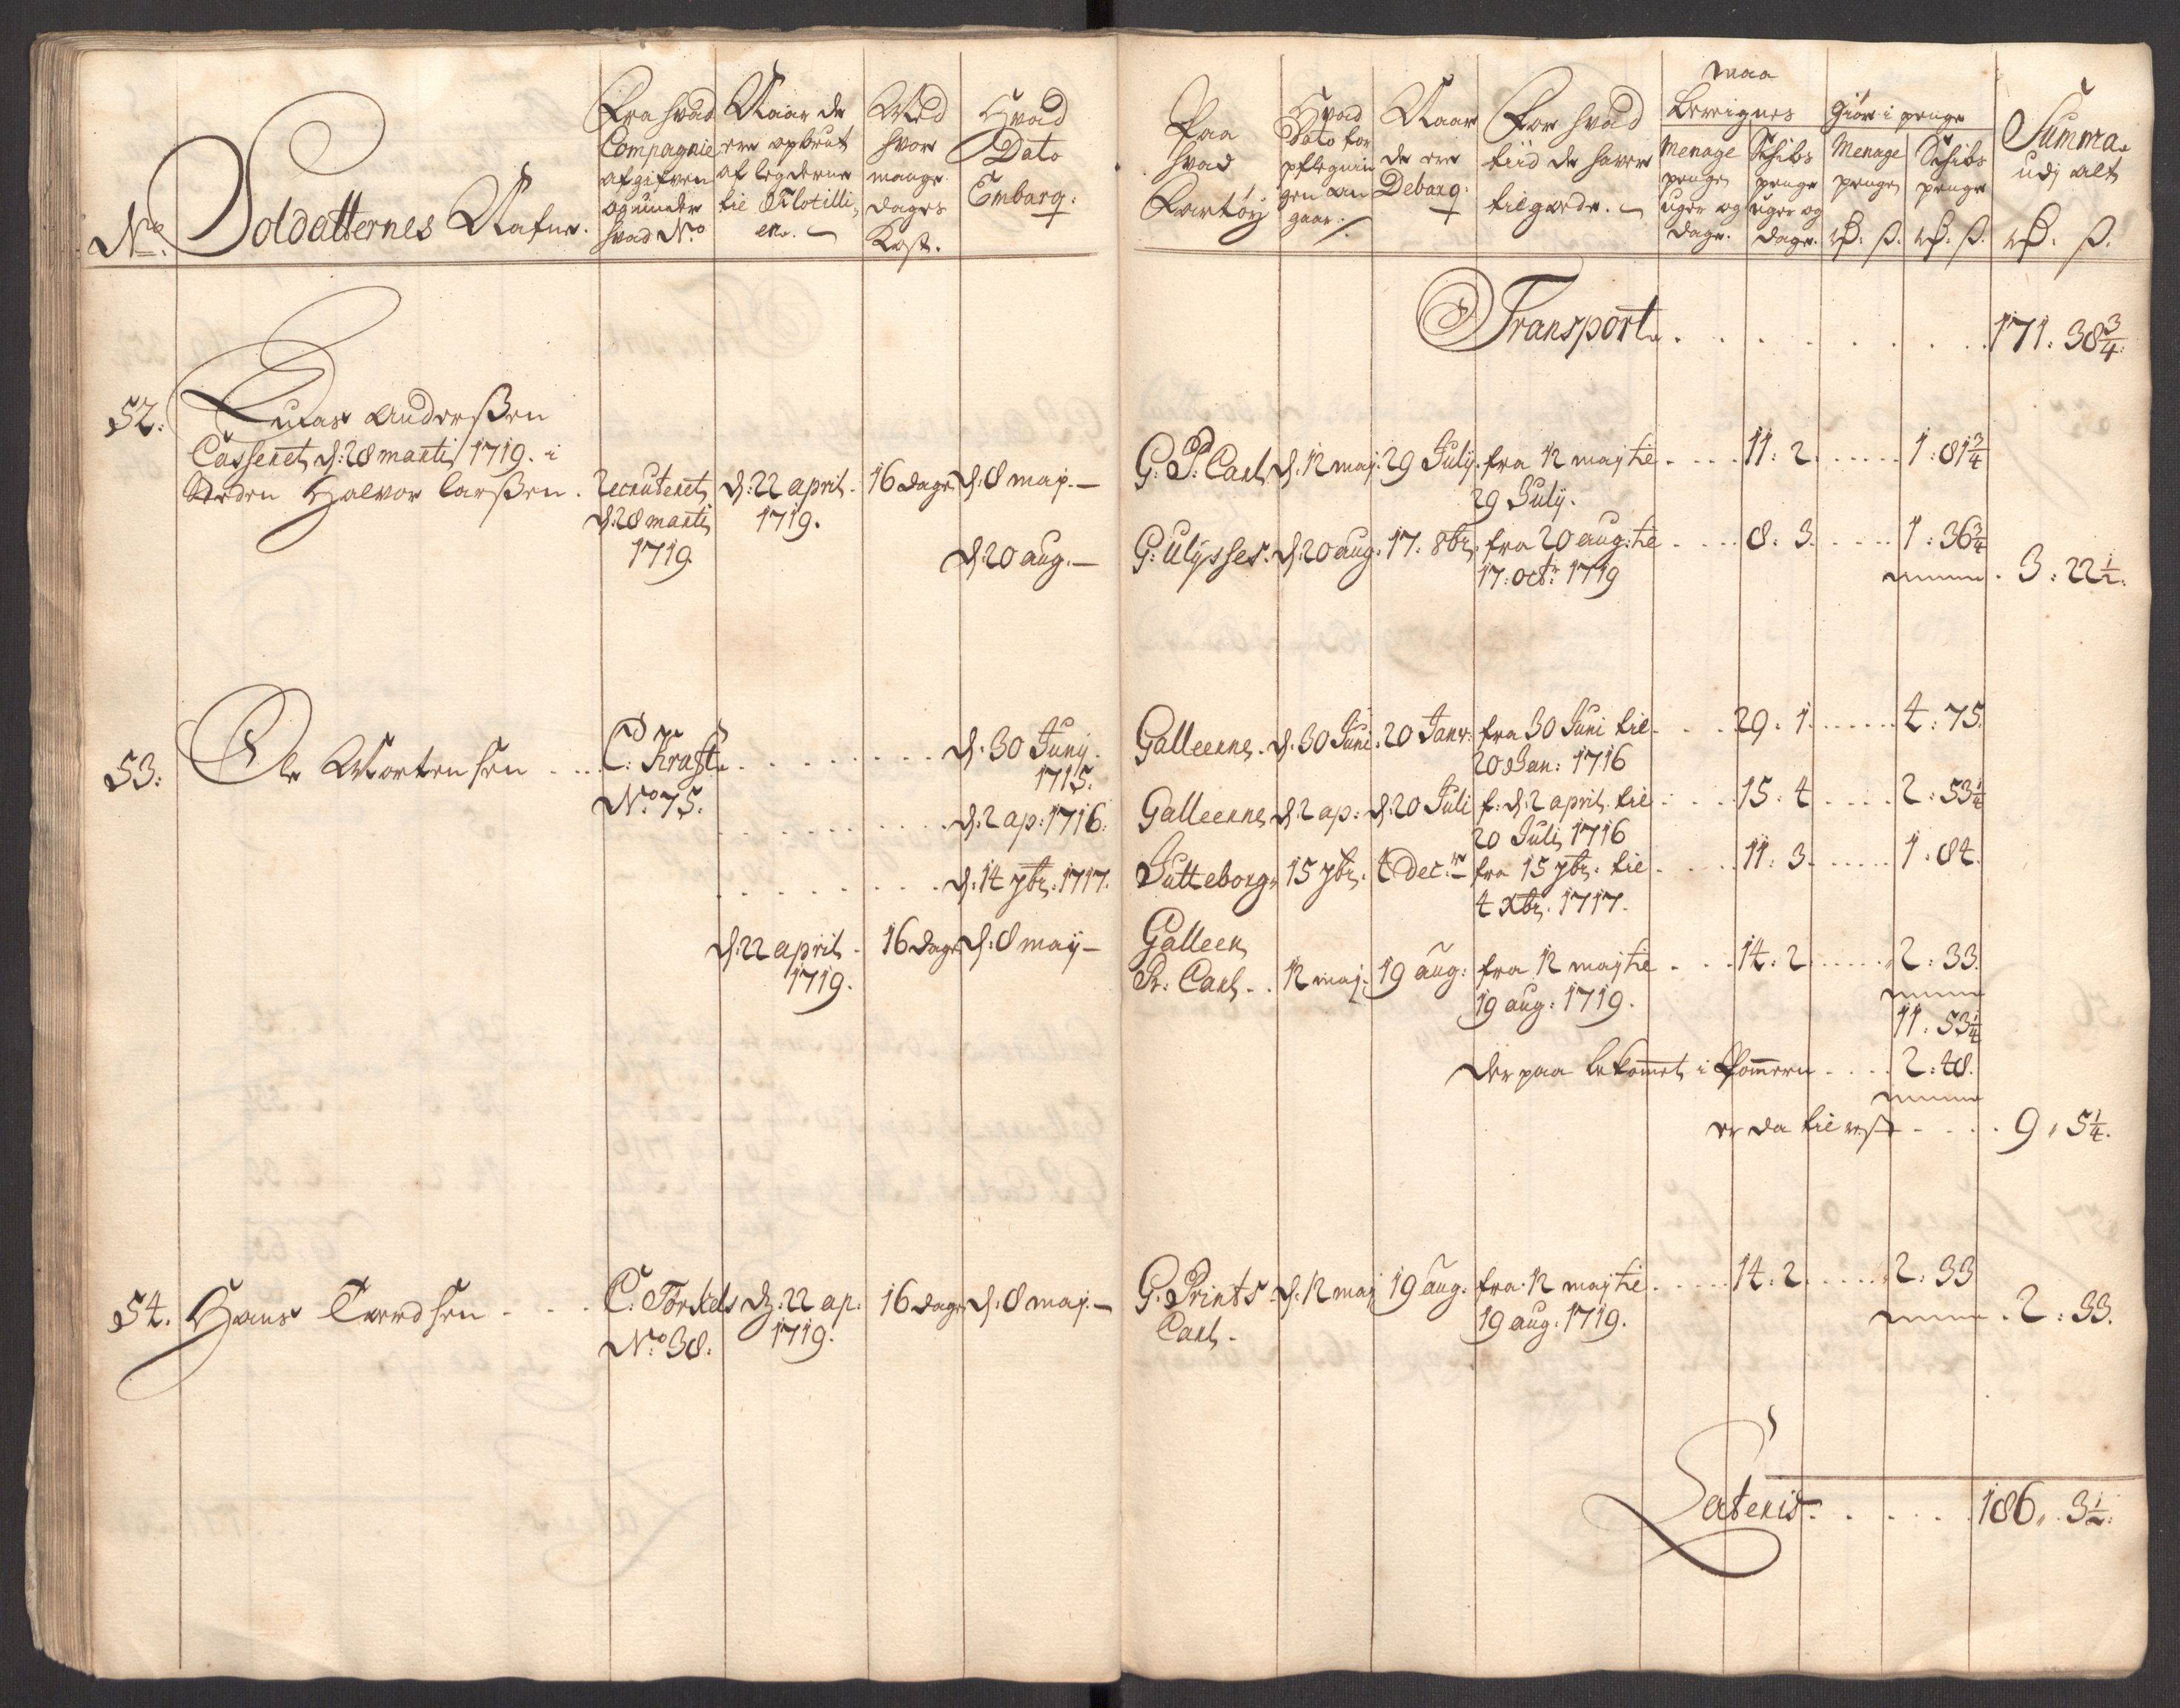 No.
Soldatternes Nafne.
Fra hvad
Compagnie
afgifven
og under
hvad No
Naar de
ere opbrut
af legderne
til Flotilli-
en.
Med
hvor
mange
dages
Kost.
Hvad
Dato
Embarq:
Paa
hvad
Fartöy
Hvad
Dato for
pflegnin
gen an
gaar
Naar
de ere
Debarq:
For hvad
tiid de haver
tilgode.
maa
Berreignes
Menage
penge
uger og
dage.
Schibs
penge
uger og
dage.
Giör i penge
Menage
penge
rd: ß.
Schibs
penge
rd: ß.
Summa
udj alt
rd: ß.
Transport . . . . . . 171: 38 3/4
52: Lucas Anderßen
Casseret d: 28 marti 1719. i
Steden Halvor Larßen. Recruteret d: 22 april. 16 dage d: 8 maj.
d: 28 marti 1719.
1719
d: 20 aug.
G: P: Carl d. 12 maj. 29 July. fra 12 maj til . . . 11: 2 . . . . 1: 81 3/4
29 July.
G: Ulysses. d: 20 aug. 17. 8br. fra 20 aug: til . . . 8: 3. . . . 1: 36 3/4
17: octr 1719
3: 22 1/2.
53: Ole Mortensen . . . C: Kraft . . . . d: 30 Juny.
1715.
No 75.
d: 2 ap: 1716.
d. 14 7br. 1717.
d: 22 april. 16 dage d: 8 maÿ
1719.
Galleerne. d. 30 Juni. 20 Janv: fra 30 Juni til . . 29. 1. . . . 4: 75.
20 Jan: 1716
Galleerne d. 2 ap: d: 20 Juli f: d. 2 april til . . . 15. 4 . . . 2: 53 1/4
20 Juli 1716
Jutteborg 15 7br. 4 Decr fra 15 7br. til . . . 11: 3. . . . 1. 84.
4 Xbr. 1717.
Galleen
Pr: Carl . . 12 maj. 19 aug: fra 12 maj til . . . 14: 2 . . . . 2: 33.
19 aug: 1719.
11: 53 1/4
Der paa bekommet i Pommern . . . 2: 48.
er da til rest . . . . 9: 5 1/4.
54. Hans Tordsen . . . C: Torkels d: 22 ap: 16 dage d: 8 maj.
No 38. 1719.
G. Prints d. 12 maj 19 aug: fra 12 maj til . . . . 14: 2 . . . . 2: 33
Carl. 19 aug: 1719.
2: 33.
Lateris . . . . . 186. 3 1/2.